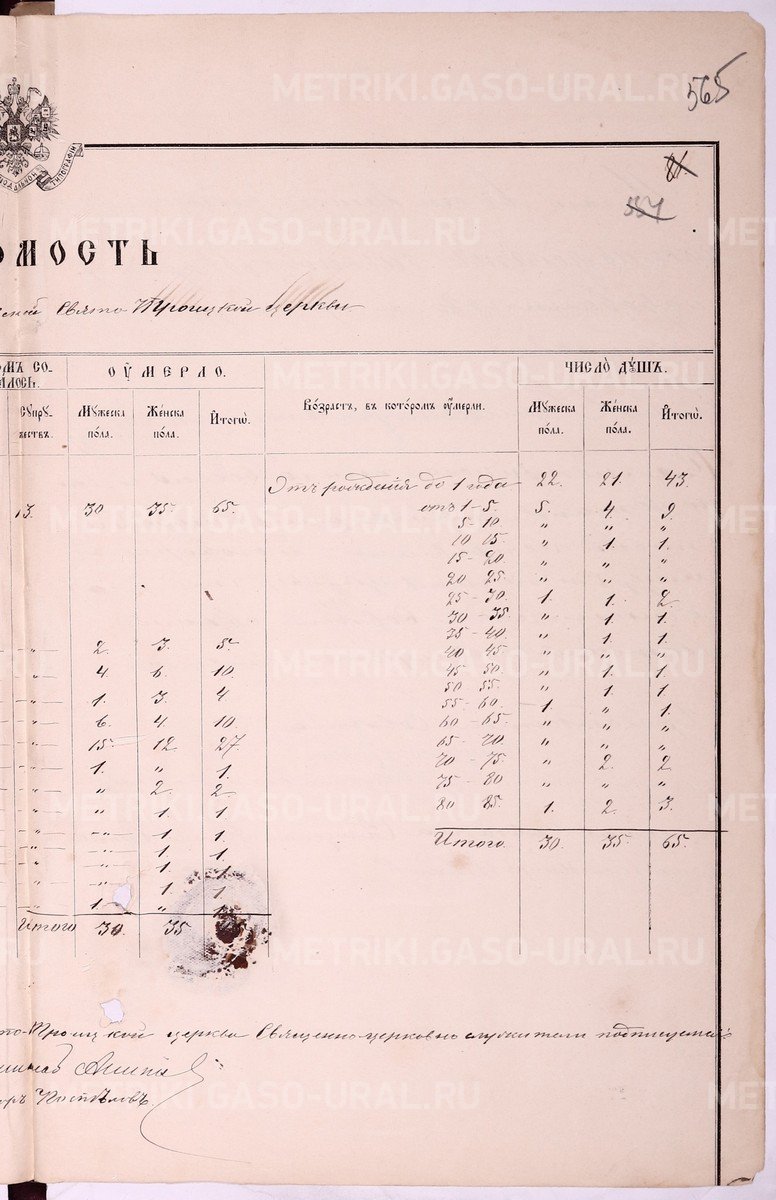 METRIKI.GASO-URAL.RU
565
551
ОМОСТЬ
ской Свято Троицкой церкви
ОМЪ СО-
ЛОСЬ.
ОУМЕРЛО.
Возрастъ, въ которомъ оумерли.
ЧИСЛО ДУШЪ.
Супру-
жествъ.
Мужеска пола.
Женска пола.
Итого.
Мужеска пола.
Женска пола.
Итого.
Отъ рожденія до 1 года 22. 21. 43.
13. 30 35. 65. отъ 1 - 5. 5. 4. 9.
5 - 10 " " "
10 15. " 1. 1.
15 - 20. " " "
20 25. " " "
25 - 30. 1. 1. 2.
30 - 35. " 1. 1.
35 - 40. " 1. 1.
- " - 2. 3. 5. 40 45 " " "
- " - 4. 6. 10. 45 50. " 1. 1.
- " - 1. 3. 4 50 55. " 1. 1.
- " - 6. 4. 10 55 - 60. 1. " 1.
60 - 65. " " "
- " - 15. 12. 27. 65 - 70. " " "
- " - 1. " 1. 70 - 75 " 2. 2.
- " - " 2. 2. 75 - 80 " " "
- " - " 1. 1. 80 85. 1. 2. 3.
- " - - " - 1. 1.
Итого 30. 35. 65.
- " - - " - 1. 1.
- " - - " - 1. 1.
- " - - " - 1. 1.
- " - 1. " 1.
Итого 30. 35
то-Троицкой церкви Священно-церковно служители подписуемся:
Поспѣловъ